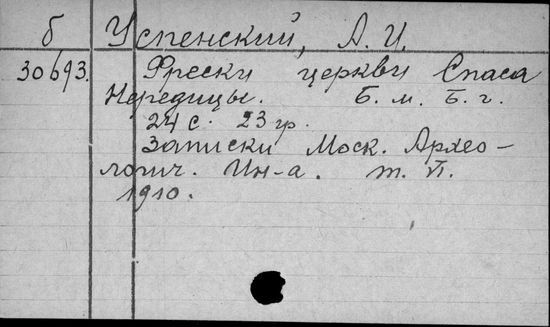 б Успенский, А. И.
30693. Фрески церкви Спаса
Нередицы. Б. м. Б. г.
24 с. 23 гр.
Записки Моск. Архео-
логич. Ин-а. т. VI.
1910.